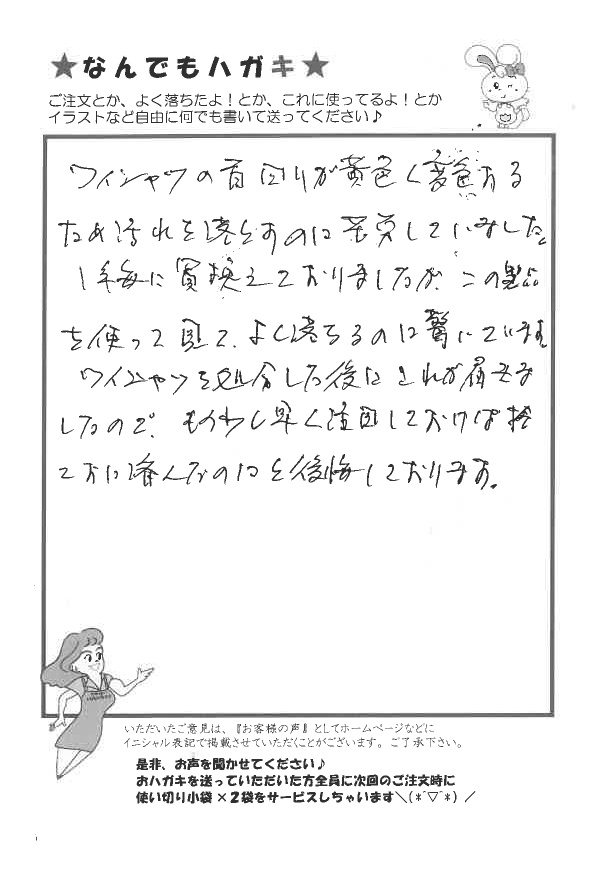 ★なんでもハガキ★
ご注文とか、よく落ちたよ！とか、これに使ってるよ！とか
イラストなど自由に何でも書いて送ってください♪
ワイシャツの首回りが黄色く変色する
ため汚れを落とすのに苦労していました。
1年毎に買換えておりましたが、この製品
を使って見て、よく落ちるのに驚いています
ワイシャツを処分した後にこれが届きま
したので、もう少し早く注文しておけば捨
てずに済んだのにと後悔しております。
いただいたご意見は、『お客様の声』としてホームページなどに
イニシャル表記で掲載させていただくことがございます。ご了承下さい。
是非、お声を聞かせてください♪
おハガキを送っていただいた方全員に次回のご注文時に
使い切り小袋×２袋をサービスしちゃいます＼(*´▽`*)／